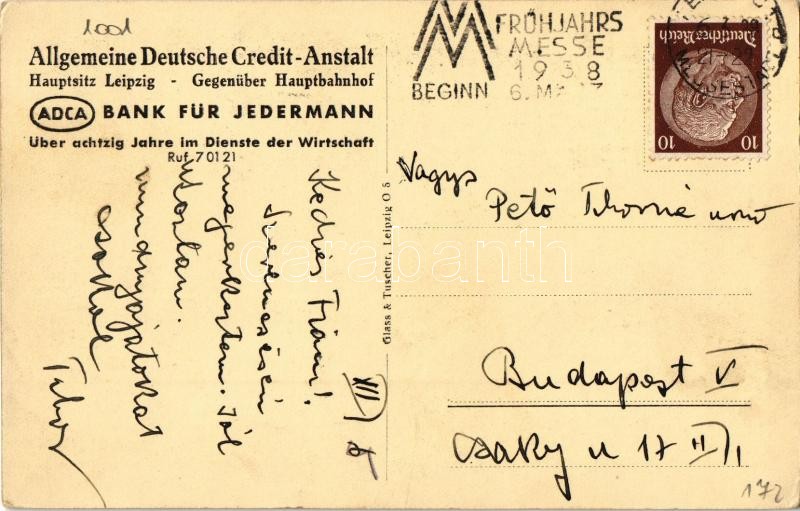 1001
Allgemeine Deutsche Credit-Anstalt
Hauptsitz Leipzig - Gegenüber Hauptbahnhof
ADCA BANK FÜR JEDERMANN
Über achtzig Jahre im Dienste der Wirtschaft
Ruf 70121
FRÜHJAHRS
MESSE
1938
BEGINN 6. MÄRZ
Deutsches Reich
10 10
XII/5
Kedves Fiaim!
Szerencsésen
megérkeztem. Jól
utaztam.
mindnyájatokat
csókol
Tibor
Glass & Tuscher, Leipzig O 5
Nagys
Pető Tiborné
Budapest V
Csaky u 17 II/1
172
darabanth